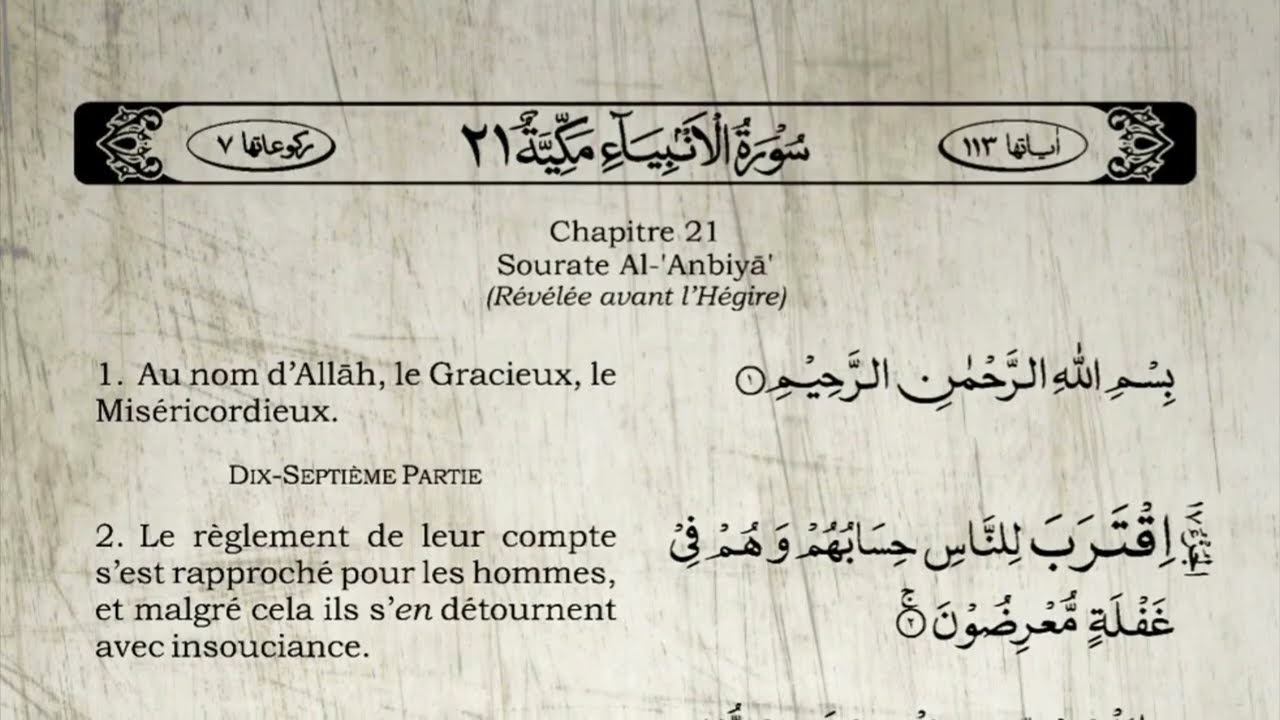 اٰیاتها ١١٣
سُوْرَةُ الْاَنْۢبِيَآءِ مَكِّيَّةٌ ٢١
رکوعاتها ٧
Chapitre 21
Sourate Al-'Anbiyā'
(Révélée avant l'Hégire)
1. Au nom d'Allāh, le Gracieux, le
Miséricordieux.
بِسْمِ اللّٰهِ الرَّحْمٰنِ الرَّحِيْمِ ①
DIX-SEPTIÈME PARTIE
2. Le règlement de leur compte
s'est rapproché pour les hommes,
et malgré cela ils s'en détournent
avec insouciance.
اِقْتَرَبَ لِلنَّاسِ حِسَابُهُمْ وَ هُمْ فِيْ
غَفْلَةٍ مُّعْرِضُوْنَ ②